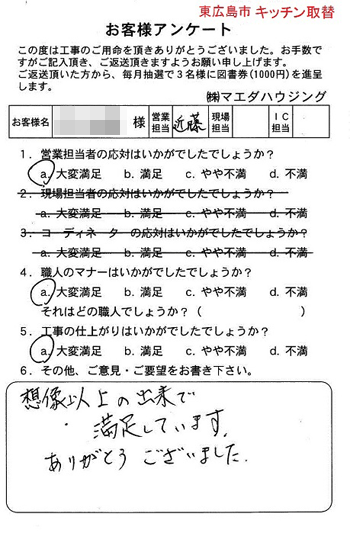 東広島市 キッチン取替
お客様アンケート
この度は工事のご用命を頂きありがとうございました。お手数で
すがご記入頂き、ご返送頂きますようお願い申し上げます。
ご返送頂いた方から、毎月抽選で3名様に図書券(1000円)を進呈
します。
㈱マエダハウジング
お客様名 様 営業担当 近藤 現場担当 IC担当
1. 営業担当者の応対はいかがでしたでしょうか？
a. 大変満足 b. 満足 c. やや不満 d. 不満
2. 現場担当者の応対はいかがでしたでしょうか？
a. 大変満足 b. 満足 c. やや不満 d. 不満
3. コーディネーターの応対はいかがでしたでしょうか？
a. 大変満足 b. 満足 c. やや不満 d. 不満
4. 職人のマナーはいかがでしたでしょうか？
a. 大変満足 b. 満足 c. やや不満 d. 不満
それはどの職人でしょうか？( )
5. 工事の仕上がりはいかがでしたでしょうか？
a. 大変満足 b. 満足 c. やや不満 d. 不満
6. その他、ご意見・ご要望をお書き下さい。
想像以上の出来で
満足しています。
ありがとうございました。